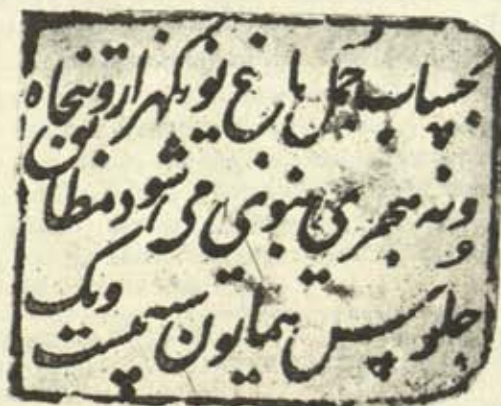 بحساب جُمل باغ نو یکهزار و پنجاه
ونه هجری نبوی می شود مطابق
جلوس همایون سنه بیست ویک